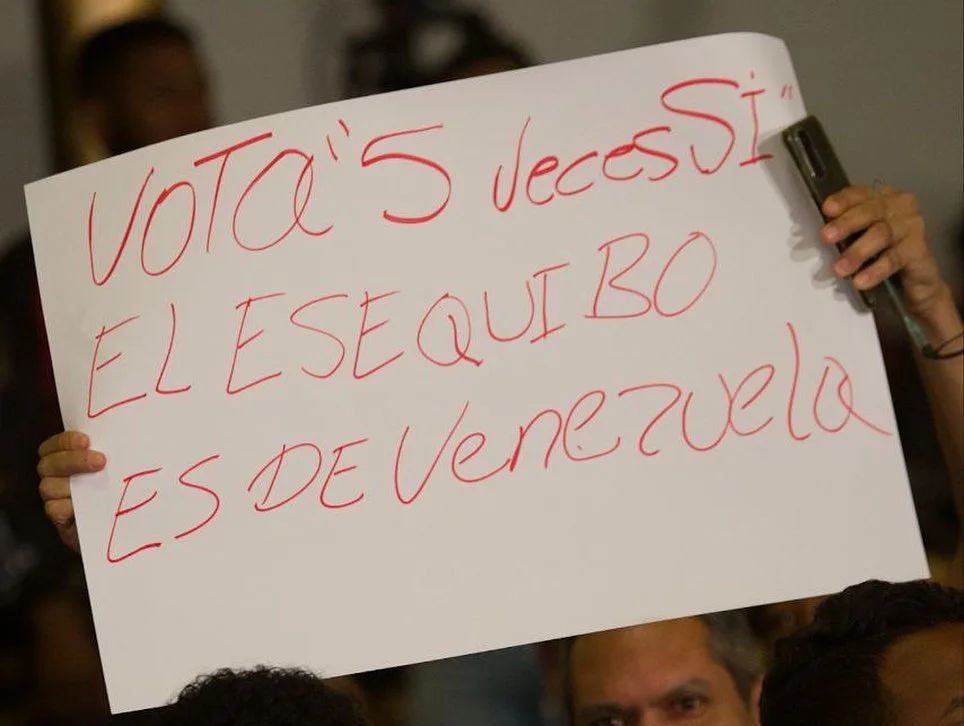 VOTA "5 veces SI"
EL ESEQUIBO
ES DE Venezuela